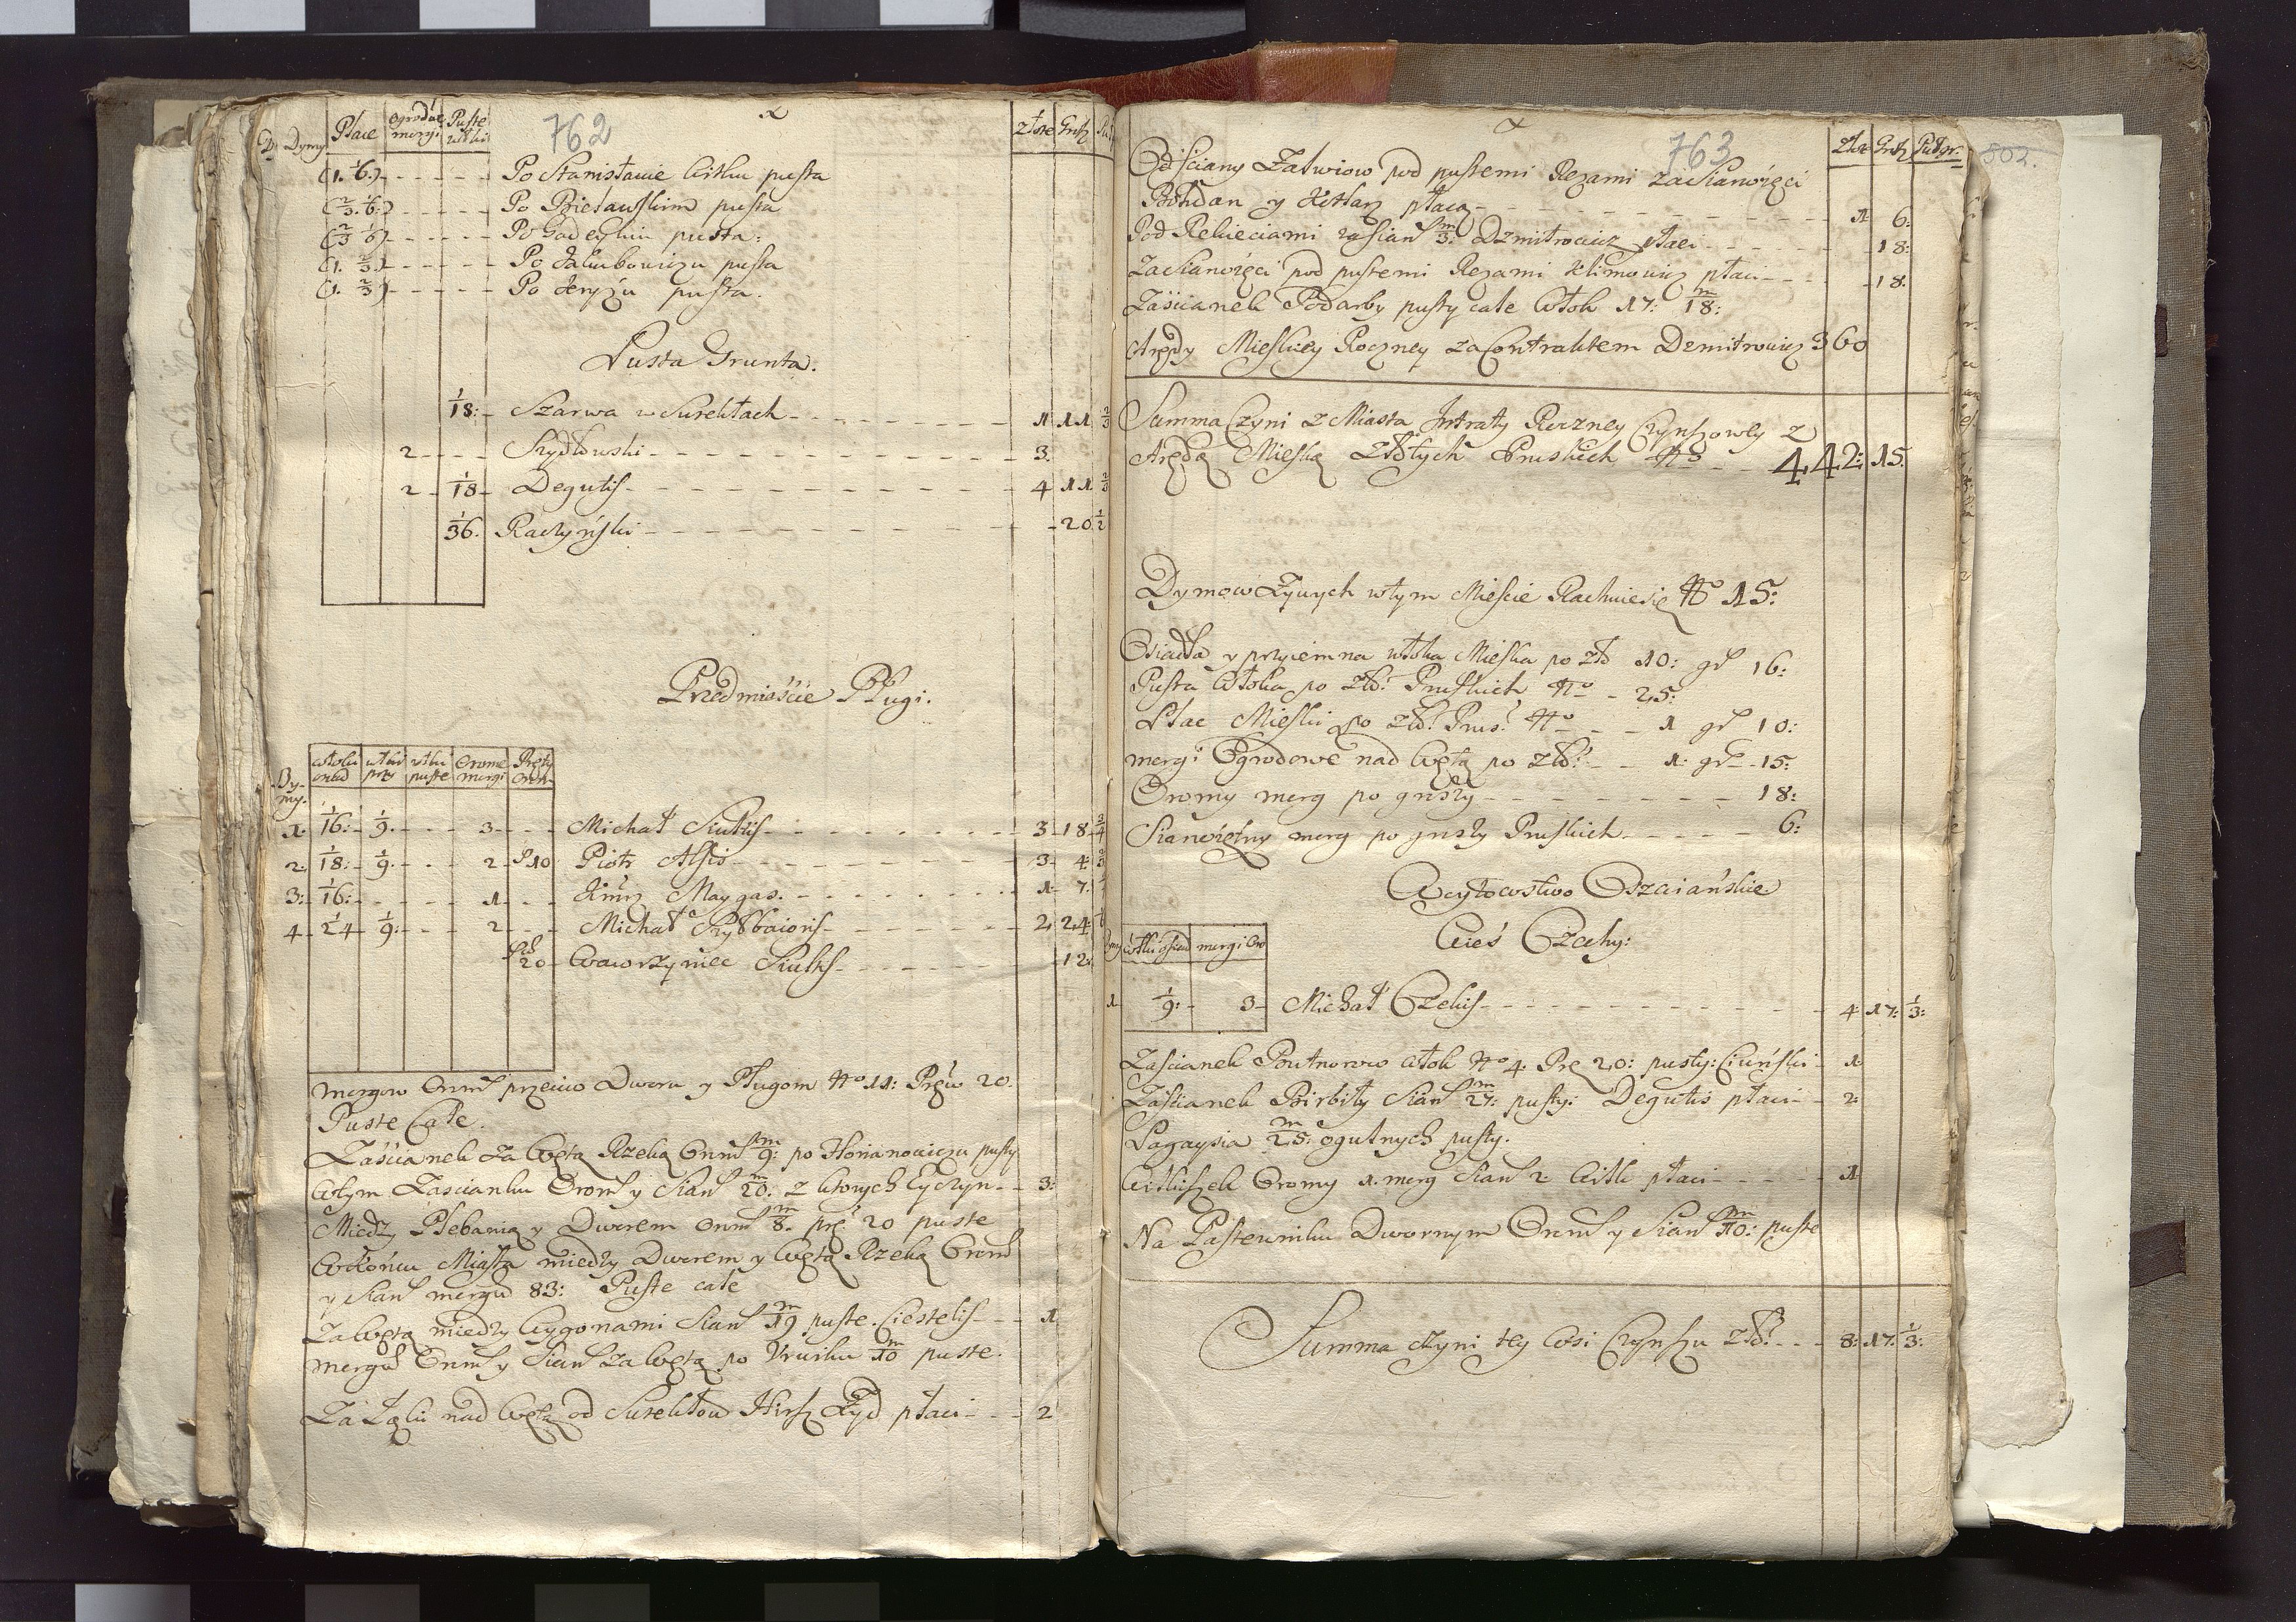 762
Dymy Place Ogrodne mergi Puste włoki złote Grosz
(1. 1/6.) - - - - - - Po Stanisławie Witku pusta
(2/3. 1/6.) - - - - - Po Bielawskim pusta
(2/3 1/6) - - - - - Po Gadeykiu pusta:
(1. 2/3.) - - - - - Po Jakubowiczu pusta
(1. 2/3) - - - - - Po Jerzyu pusta.
Pusta Grunta.
1/18: - Szarwa w Surektach - - - 1 11 2/3
2 - - - Szydłowski - - - 3.
2 - 1/18 - Degutis - - - 4 11 2/3
1/36. Raczyński - - - 20 1/2
Przedmieście Pługi.
Dymy. włoki osiad włoki prz włki puste Orome mergi Pręty Orom
1. 1/16: - 1/9. - - - 3 - - - Michał Siutis - - - 3 18 3/4
2: 1/18: - 1/9. - - - 2 - P 10 Piotr Alsis - - - 3 - 4: 2/3
3: 1/16: - - - - - 1 - - - Jmrz Maygas. - - - 1 - 7:
4 - 1/24 - 1/9: - - - 2 - - - Michał Szydbaions - - - 2, 24:
20 - Wawrzyniec Siutis - - - 12:
mergow Orom przeciw Dworu y Pługom No 11: Pręw 20.
Puste Całe.
Zaścianek za Wętą Rzeką Orom 9: m po Horianowiczu pusty
W tym Zascianku Orom y Sian 20. m z ktorych Cyczyn - - 3:
Miedzy Plebanią y Dworem Orom 8. m prę. 20 puste
W końcu Miasta miedzy Dworem y Wętą Rzeką Orom
y Sian mergw 83: Puste całe
Za Wętą miedzy Wygonami Sian 19 m puste. Ciestelis - - - 1
mergw Orom y Sian za Wętą po Kruiku 10 m puste.
Za Łąki nad Wętą od Surektow Hirsz Żyd płaci - - - 2
763
Złote Grosz Pułgr.
502.
Od ściany Załwiow pod pustemi Rezami za Sianożęci
Bohdan y Ketlarz płacą - - - 1 6:
Pod Rekieciami za Sian 3: m Dzmitrowicz płaci - - - 18:
Za Sianożęci pod pustemi Rezami Klimowicz płaci - - - 18.
Zaścianek Podarby pusty całe Włok 17: m 18:
Arędy Mieskiey Roczney za Contraktem Dzmitrowicz 360
Summa Czyni z Miasta Jntraty Roczney Czynszowey z
Arędą Mieską Złotych Pruskich No - - 442: 15.
Dymow Żywych w tym Mieście Rachuie się No 15:
Osiadła y przyiemna włoka Mieska po zło 10: gr 16:
Pusta Włoka po Zło: Pruskich No - 25:
Plac Mieski po zło: Prus: No - - - 1 gr 10:
mergi Ogrodowe nad Wętą po zło: - - 1: gr - 15:
Oromy merg po groszy - - - 18:
Sianożętny merg po groszy Pruskich - - - 6:
Woytowstwo Oszciańskie
Wieś Czaky:
Dymy włoki osiad mergi Oro
1 1/9: - 3 - Michał Czekis - - - 4: 17: 1/3:
Zascianek Butnorow Włok No 4. Prę 20: pusty: Ciuński - 1
Zaścianek Birbiły Sian 27: m pusty: Degutis płaci - - 2:
Pagaysia 25: m ogulnych pusty.
Witkiszek Oromy 1. merg Sian 2: Witk płaci - - - 1
Na Pastewniku Dwornym Orom y Sian 10: m puste
Summa czyni tey Wsi Czynszu zło: - - - 8: 17: 1/3: